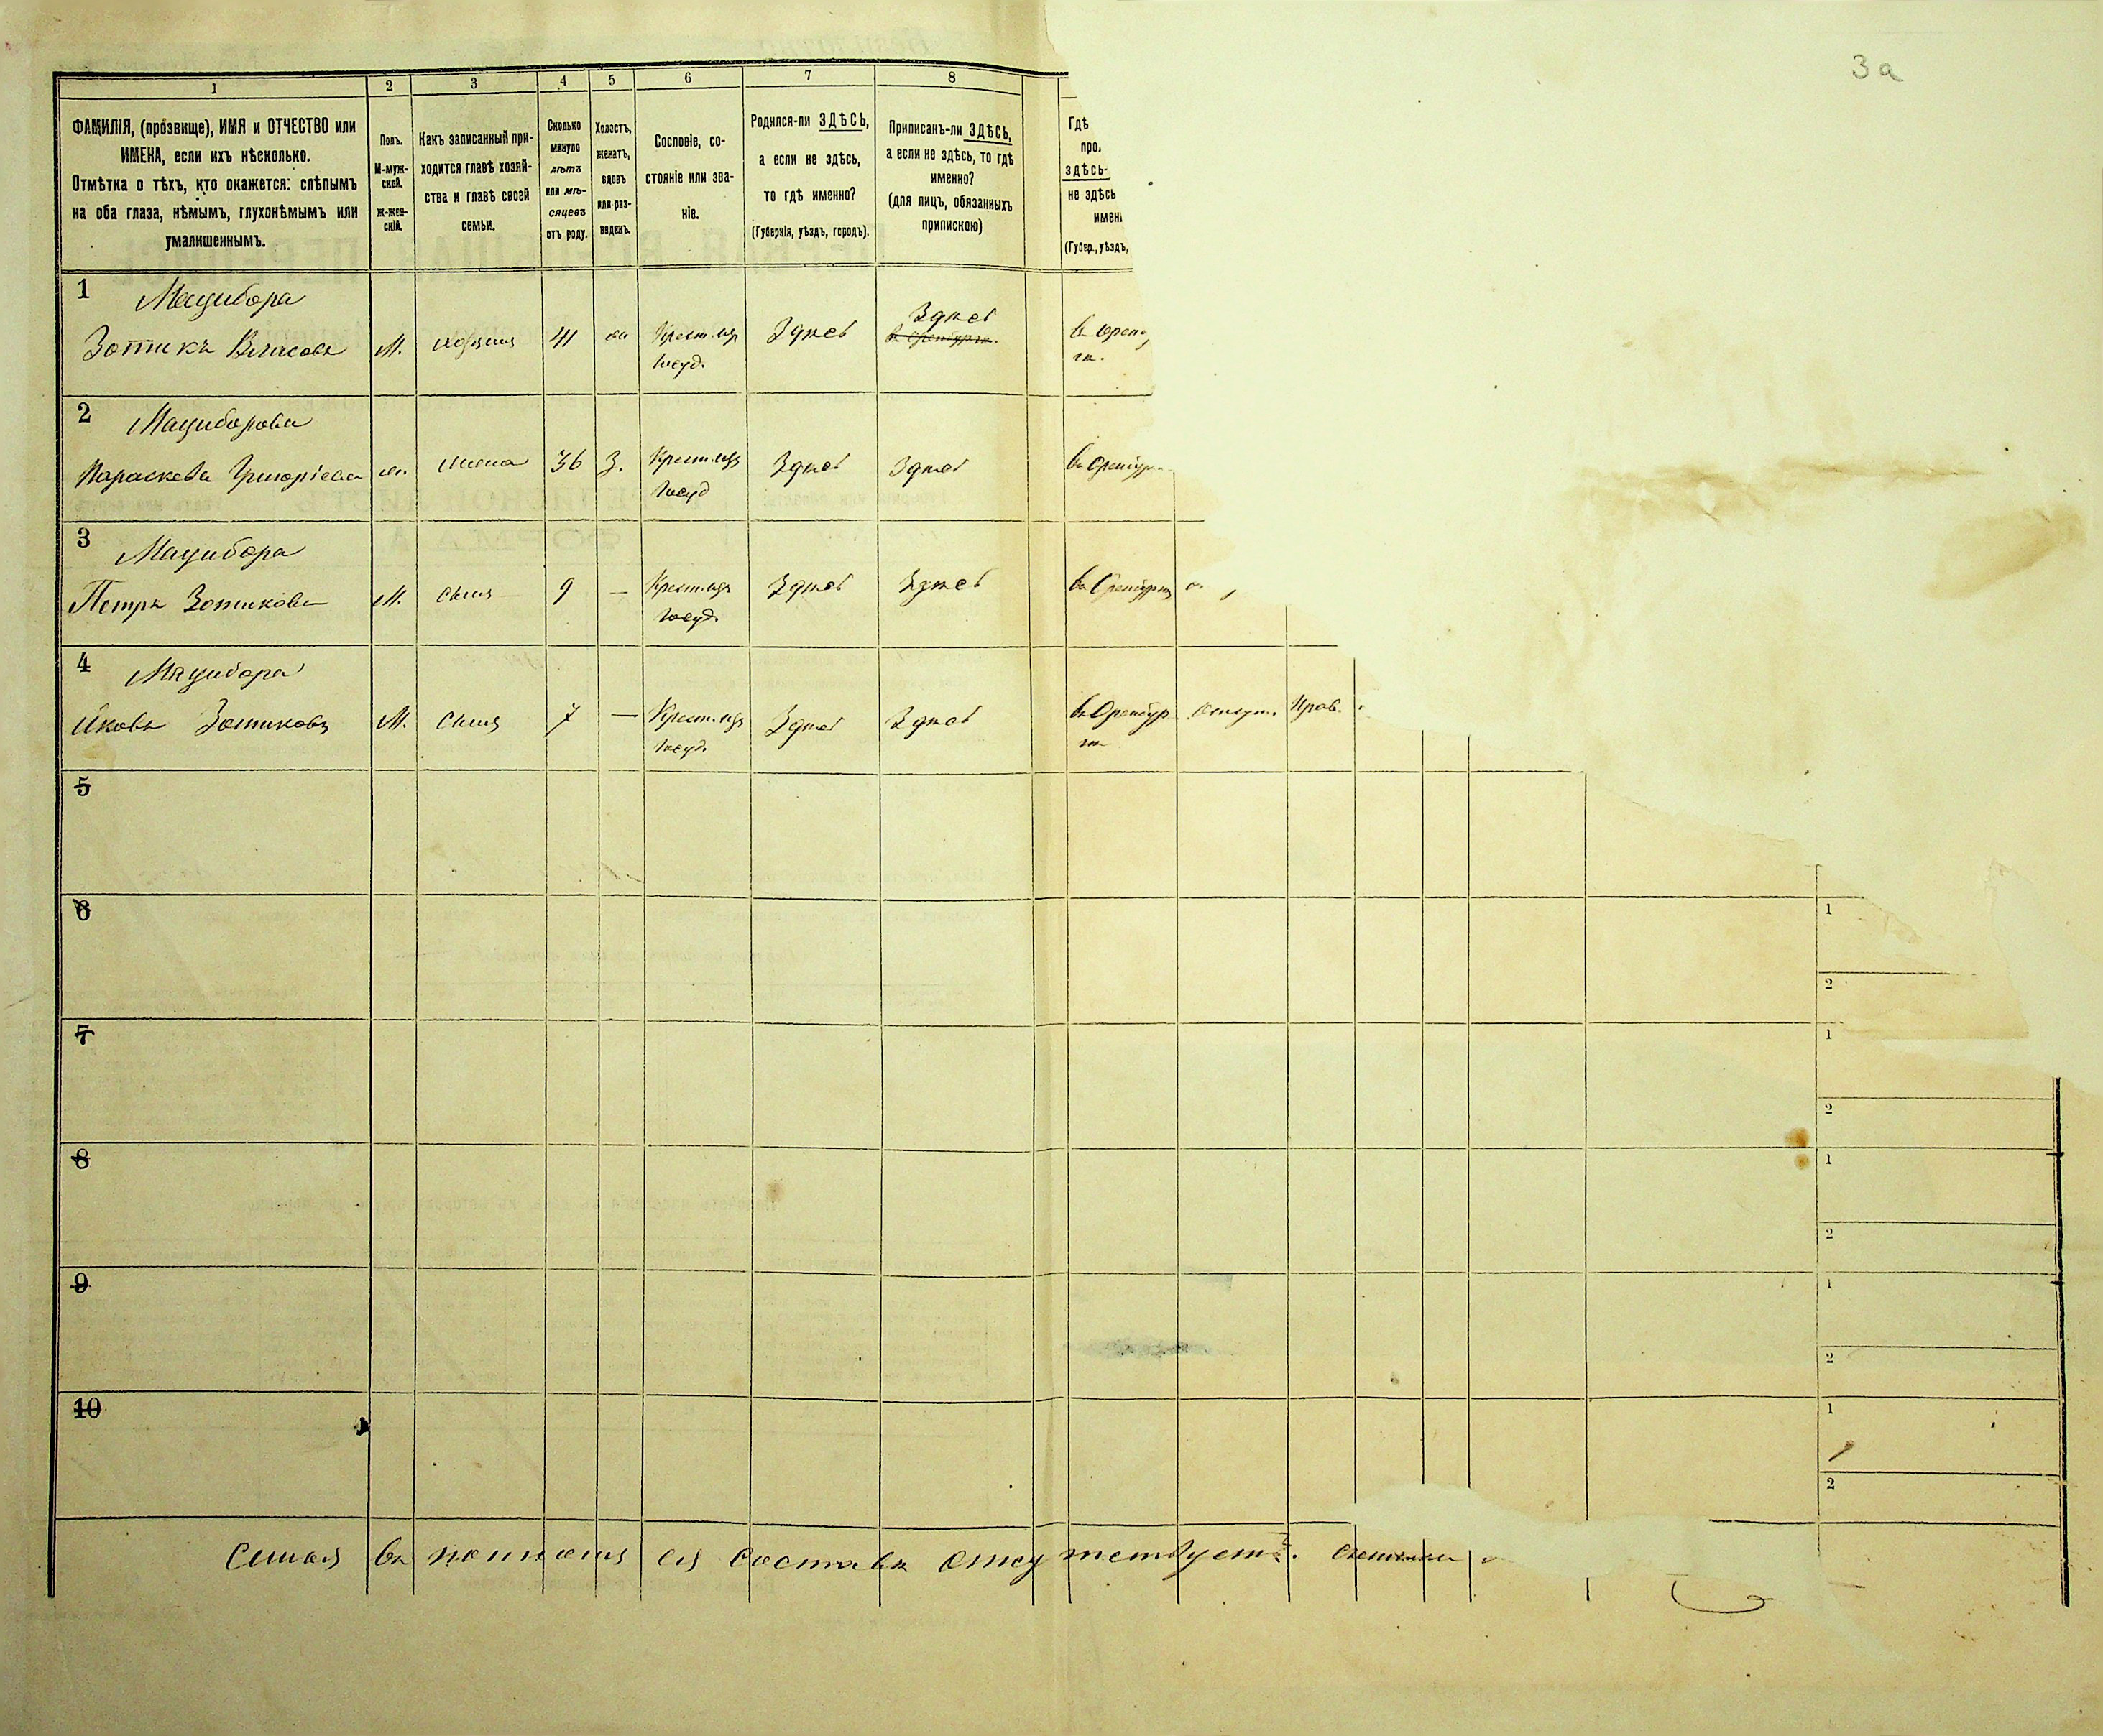 3а
1 2 3 4 5 6 7 8
ФАМИЛІЯ, (прозвище), ИМЯ и ОТЧЕСТВО или
ИМЕНА, если ихъ нѣсколько.
Отмѣтка о тѣхъ, кто окажется: слѣпымъ
на оба глаза, нѣмымъ, глухонѣмымъ или
умалишеннымъ.
Полъ.
М-муж-
ской.
ж-жен-
скій.
Какъ записанный при-
ходится главѣ хозяй-
ства и главѣ своей
семьи.
Сколько
минуло
лѣтъ
или мѣ-
сяцевъ
отъ роду.
Холостъ,
женатъ,
вдовъ
или раз-
веденъ.
Сословіе, со-
стояніе или зва-
ніе.
Родился-ли ЗДѢСЬ,
а если не здѣсь,
то гдѣ именно?
(Губернія, уѣздъ, городъ).
Приписанъ-ли ЗДѢСЬ,
а если не здѣсь, то гдѣ
именно?
(для лицъ, обязанныхъ
припискою)
Гдѣ
про
здѣсь-
не здѣсь
имен
(Губер., уѣздъ,
1
Мацибора
Зотикъ Власовъ
М.
хозяинъ
41
Крест. изъ
госуд.
Здѣсь
Здѣсь
въ Оренбургѣ.
въ Орен
гѣ.
2
Мациборова
Параскева Григоріева
жена
36
З.
Крест. изъ
госуд
Здѣсь
Здѣсь
въ Оренбур
3
Мацибора
Петръ Зотиковъ
М.
сынъ
9
—
Крест. изъ
госуд.
Здѣсь
Здѣсь
въ Оренбургѣ
4
Мацибора
Яковъ Зотиковъ
М.
сынъ
7
—
Крест. изъ
госуд.
Здѣсь
Здѣсь
въ Оренбур
гѣ
отсут.
Прав.
5
6
1
2
7
1
2
8
1
2
9
1
2
10
1
2
Семья въ полномъ ея составѣ отсутствуетъ.